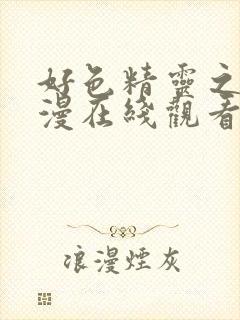 好色精靈之
漫在綫觀看
浪漫煙灰